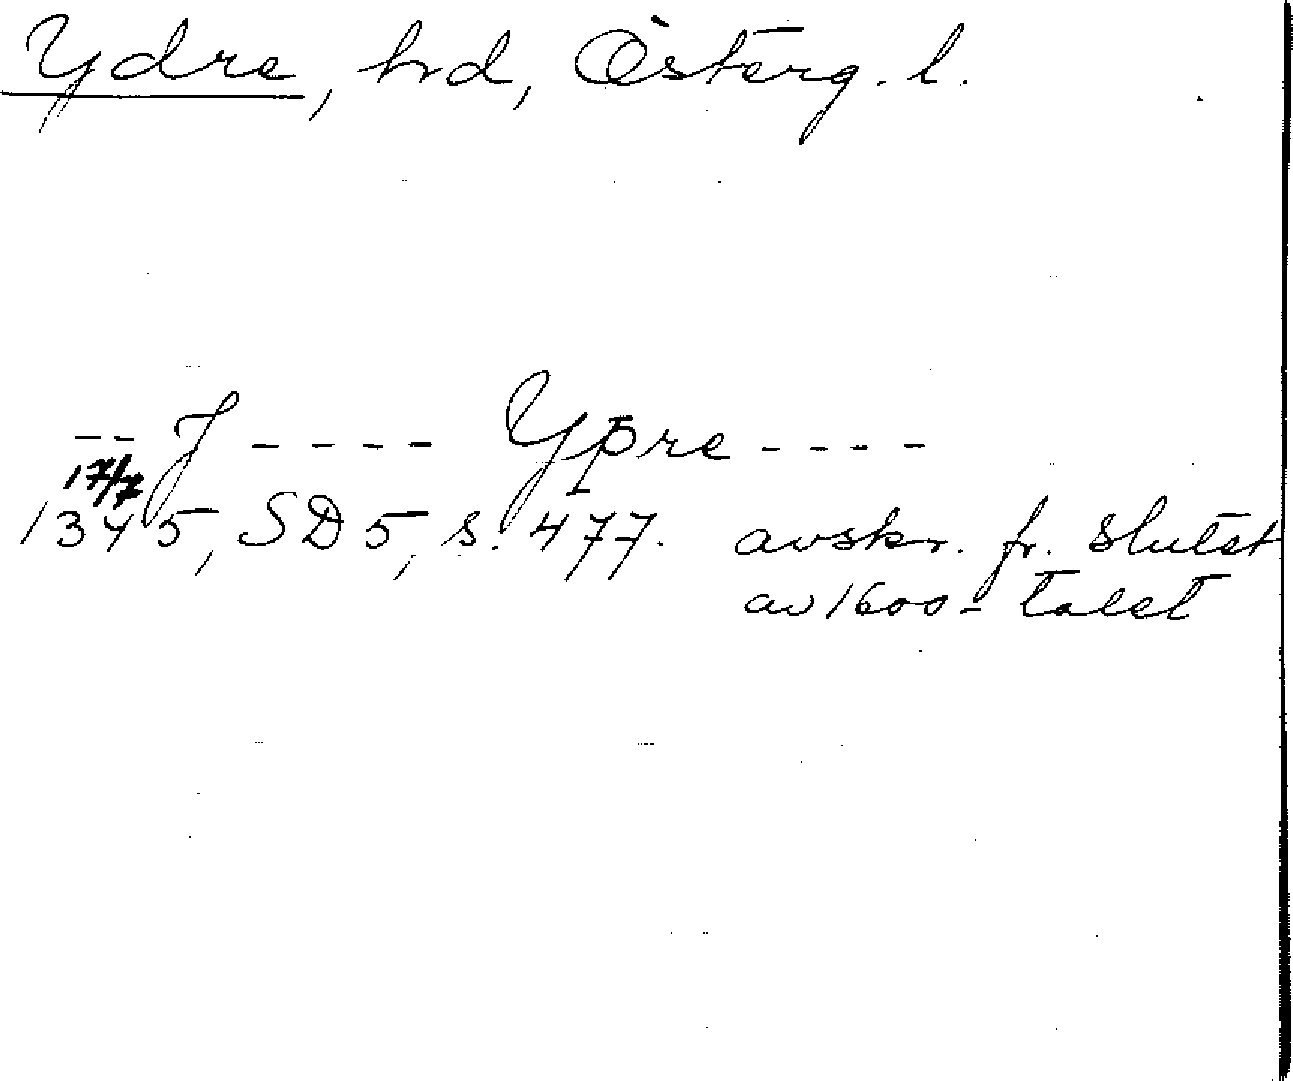 Ydre, hd, Österg. l.
-- J ---- Ypre ----
17/7
1345, SD 5, s. 477. avskr. fr. slutet
av 1600-talet